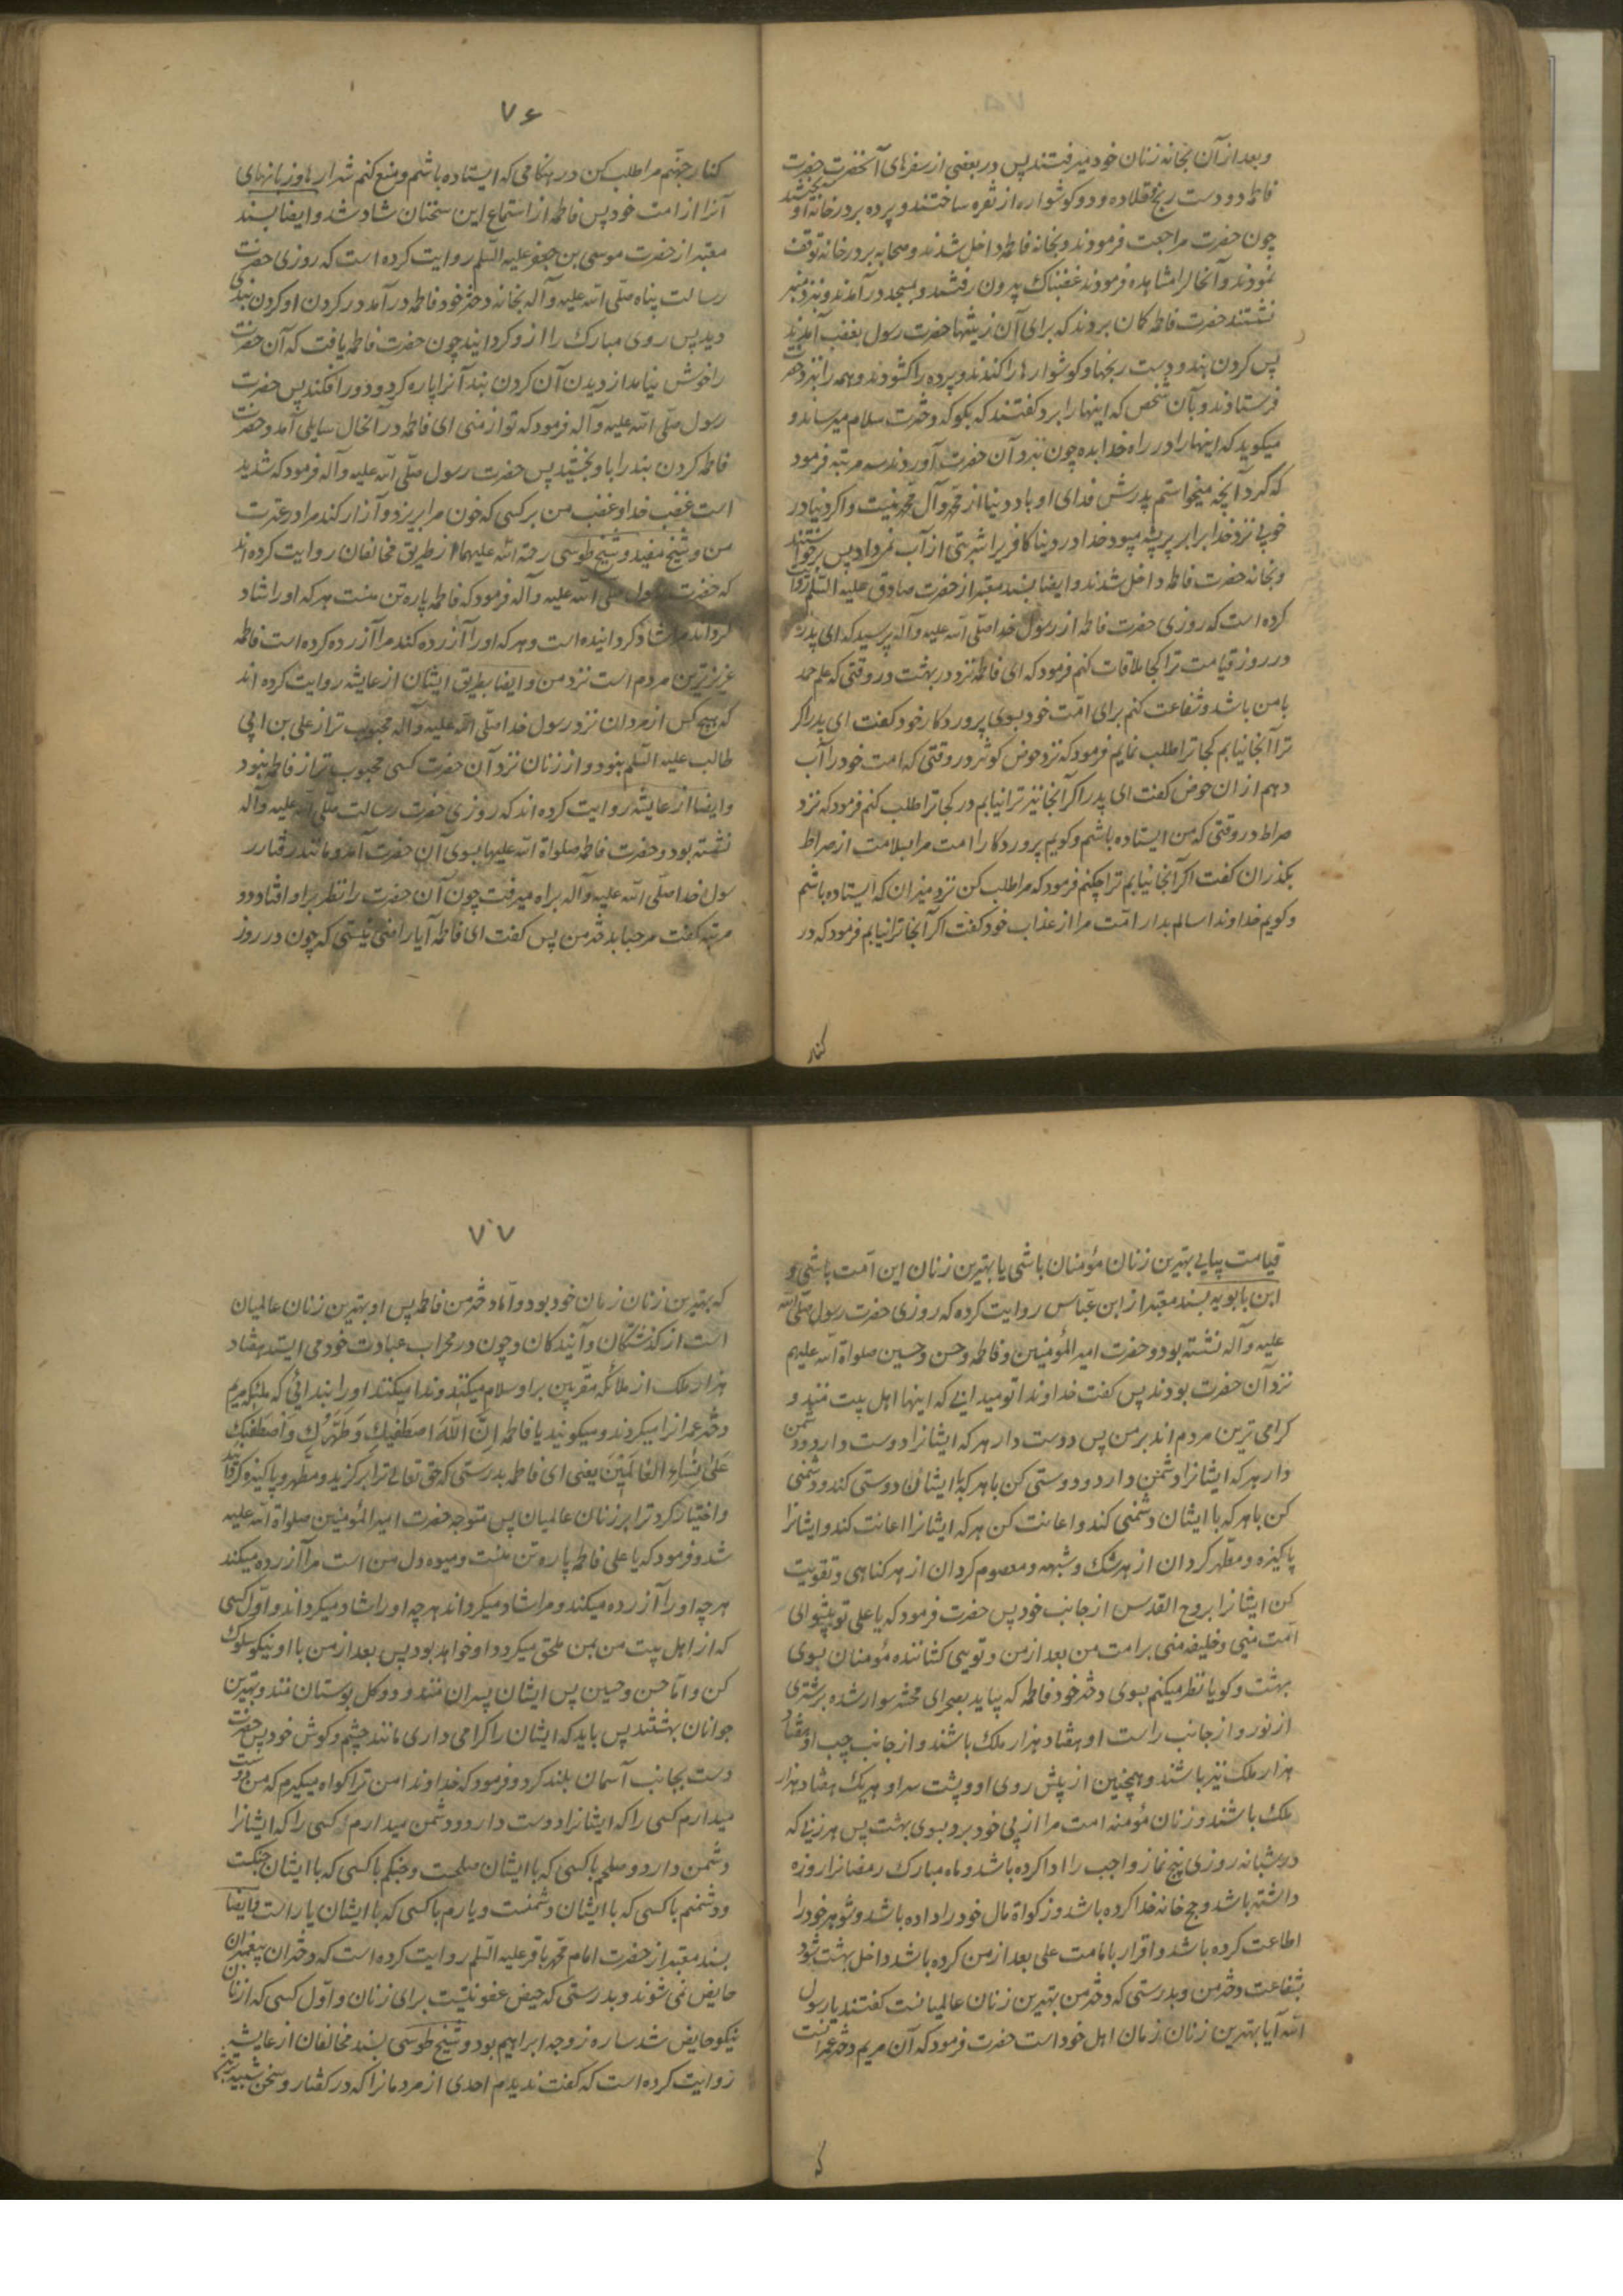 وبعد از آن بخانه زنان خود میرفتند پس در بعضی از سفرهای آنحضرت حضرت
فاطمه دو دست رنج و قلاده و دو کوشواره از نقره ساختند و پرده بر در خانه آویختند
چون حضرت مراجعت فرمودند و بخانه فاطمه داخل شدند و صحابه بر در خانه توقف
نمودند و آنحال را مشاهده فرمودند غضبناک بیرون رفتند و بمسجد در آمدند و نزد منبر
نشستند حضرت فاطمه کمان بردند که برای آن زینتها حضرت رسول بغضب آمدند
پس کردن بند و دست رنجها و کوشوارها را کندند و پرده را کشودند و همه را نزد حضرت
فرستادند و بآن شخص که اینها را برد کفتند که بکو که دخترت سلام میرساند و
میکوید که اینها را در راه خدا بده چون نزد آن حضرت آوردند سه مرتبه فرمود
که کرد آنچه میخواستم پدرش فدای او باد دنیا از محمد و آل محمد نیست و اکر دنیا در
خوبی نزد خدا برابر پر پشه میبود خدا در دنیا کافری را شربتی از آب نمیداد پس برخواستند
و بخانه حضرت فاطمه داخل شدند و ایضا بسند معتبر از حضرت صادق علیه السلم روایت
کرده است که روزی حضرت فاطمه از رسول خدا صلی الله علیه و آله پرسید که ای پدر
در روز قیامت ترا کجا ملاقات کنم فرمود که ای فاطمه نزد در بهشت در وقتی که علم حمد
با من باشد و شفاعت کنم برای امت خود بسوی پروردکار خود کفت ای پدر اکر
ترا آنجا نیابم کجا ترا طلب نمایم فرمود که نزد حوض کوثر در وقتی که امت خود را آب
دهم از ان حوض کفت ای پدر اکر آنجا نیز ترا نیابم در کجا ترا طلب کنم فرمود که نزد
صراط در وقتی که من ایستاده باشم و کویم پروردکارا امت مرا بسلامت از صراط
بکذران کفت اکر آنجا نیابم ترا چکنم فرمود که مرا طلب کن نزد میزان که ایستاده باشم
و کویم خداوندا سالم بدار امت مرا از عذاب خود کفت اکر آنجا ترا نیابم فرمود که در
کنار
۷۶
کنار جهنم مرا طلب کن در هنکامی که ایستاده باشم و منع کنم شرارها و زبانهای
آنرا از امت خود پس فاطمه از استماع این سخنان شاد شد و ایضا بسند
معتبر از حضرت موسی بن جعفر علیه السلم روایت کرده است که روزی حضرت
رسالت پناه صلی الله علیه و آله بخانه دختر خود فاطمه در آمد در کردن او کردن بندی
دید پس روی مبارک را از او کردانید چون حضرت فاطمه یافت که آن حضرت
را خوش نیامد از دیدن آن کردن بند آنرا پاره کرد و دور افکند پس حضرت
رسول صلی الله علیه و آله فرمود که تو از منی ای فاطمه در آنحال سایلی آمد و حضرت
فاطمه کردن بند را باو بخشید پس حضرت رسول صلی الله علیه و آله فرمود که شدید
است غضب خدا و غضب من بر کسی که خون مرا بریزد و آزار کند مرا در عترت
من و شیخ مفید و شیخ طوسی رحمة الله علیهما از طریق مخالفان روایت کرده اند
که حضرت رسول صلی الله علیه و آله فرمود که فاطمه پاره تن منست هر که او را شاد
کرداند مرا شاد کردانیده است و هر که او را آزرده کند مرا آزرده کرده است فاطمه
عزیزترین مردم است نزد من و ایضا بطریق ایشان از عایشه روایت کرده اند
که هیچ کس از مردان نزد رسول خدا صلی الله علیه و آله محبوب تر از علی بن ابی
طالب علیه السلم نبود و از زنان نزد آن حضرت کسی محبوب تر از فاطمه نبود
و ایضا از عایشه روایت کرده اند که روزی حضرت رسالت صلی الله علیه و آله
نشسته بود و حضرت فاطمه صلواة الله علیها بسوی آن حضرت آمد و مانند رفتار ر
سول خدا صلی الله علیه و آله براه میرفت چون آن حضرت را نظر بر او افتاد دو
مرتبه کفت مرحبا بدختر من پس کفت ای فاطمه آیا راضی نیستی که چون در روز
قیامت بیایی بهترین زنان مؤمنان باشی یا بهترین زنان این امت باشی و
ابن بابویه بسند معتبر از ابن عباس روایت کرده که روزی حضرت رسول صلی الله
علیه و آله نشسته بود و حضرت امیر المؤمنین و فاطمه و حسن و حسین صلواة الله علیهم
نزد آن حضرت بودند پس کفت خداوندا تو میدانی که اینها اهل بیت منند و
کرامی ترین مردم اند بر من پس دوست دار هر که ایشانرا دوست دارد و دشمن
دار هر که ایشانرا دشمن دارد و دوستی کن با هر که با ایشان دوستی کند و دشمنی
کن با هر که با ایشان دشمنی کند و اعانت کن هر که ایشانرا اعانت کند و ایشانرا
پاکیزه و مطهر کردان از هر شک و شبهه و معصوم کردان از هر کناهی و تقویت
کن ایشانرا بروح القدس از جانب خود پس حضرت فرمود که یا علی تو پیشوای
امت منی و خلیفه منی بر امت من بعد از من و تویی کشاننده مؤمنان بسوی
بهشت و کویا نظر میکنم بسوی دختر خود فاطمه که بیاید بصحرای محشر سوار شده بر شتری
از نور و از جانب راست او هفتاد هزار ملک باشند و از جانب چپ او هفتاد
هزار ملک نیز باشند و همچنین از پیش روی او و پشت سر او هر یک هفتاد هزار
ملک باشند و زنان مؤمنه امت مرا از پی خود برد بسوی بهشت پس هر زنی که
در شبانه روزی پنج نماز واجب را ادا کرده باشد و ماه مبارک رمضانرا روزه
داشته باشد و حج خانه خدا کرده باشد و زکواة مال خود را داده باشد و شوهر خود را
اطاعت کرده باشد و اقرار بامامت علی بعد از من کرده باشد داخل بهشت شود
بشفاعت دختر من و بدرستی که دختر من بهترین زنان عالمیانست کفتند یا رسول
الله آیا بهترین زنان زمان اهل خود است حضرت فرمود که آن مریم دختر عمرانست
که
۷۷
که بهترین زنان زمان خود بود و اما دختر من فاطمه پس او بهترین زنان عالمیان
است از کذشتکان و آیندکان و چون در محراب عبادت خود می ایستد هفتاد
هزار ملک از ملائکه مقربین بر او سلام میکنند و ندا میکنند او را بندائی که ملئکه مریم
دختر عمرانرا میکردند و میکویند یا فاطمه اِنَّ اللّٰهَ اصطَفٰیكِ وَ طَهَّرَكِ وَ اصطَفٰیكِ
عَلیٰ نِسٰاءِ العٰالَمینَ یعنی ای فاطمه بدرستی که حق تعالی ترا برکزید و مطهر و پاکیزه کردانید
و اختیار کرد ترا بر زنان عالمیان پس متوجه حضرت امیر المؤمنین صلواة الله علیه
شد و فرمود که یا علی فاطمه پاره تن منست و میوه دل من است مرا آزرده میکند
هر چه او را آزرده میکند و مرا شاد میکرداند هر چه او را شاد میکرداند و اول کسی
که از اهل بیت من بمن ملحق میکردد او خواهد بود پس بعد از من با او نیکو سلوک
کن و اما حسن و حسین پس ایشان پسران منند و دو کل بوستان منند و بهترین
جوانان بهشتند پس باید که ایشان را کرامی داری مانند چشم و کوش خود پس حضرت
دست بجانب آسمان بلند کرد و فرمود که خداوندا من ترا کواه میکیرم که من دوست
میدارم کسی را که ایشانرا دوست دارد و دشمن میدارم کسی را که ایشانرا
دشمن دارد و صلحم با کسی که با ایشان صلحست و جنکم با کسی که با ایشان جنکست
و دشمنم با کسی که با ایشان دشمنست و یارم با کسی که با ایشان یار است و ایضا
بسند معتبر از حضرت امام محمد باقر علیه السلم روایت کرده است که دختران پیغمبران
حایض نمی شوند و بدرستی که حیض عقوبتیست برای زنان و اول کسی که از زنان
نیکو حایض شد ساره زوجه ابراهیم بود و شیخ طوسی بسند مخالفان از عایشه
روایت کرده است که کفت ندیدم احدی از مردمانرا که در کفتار و سخن شبیه تر باشد